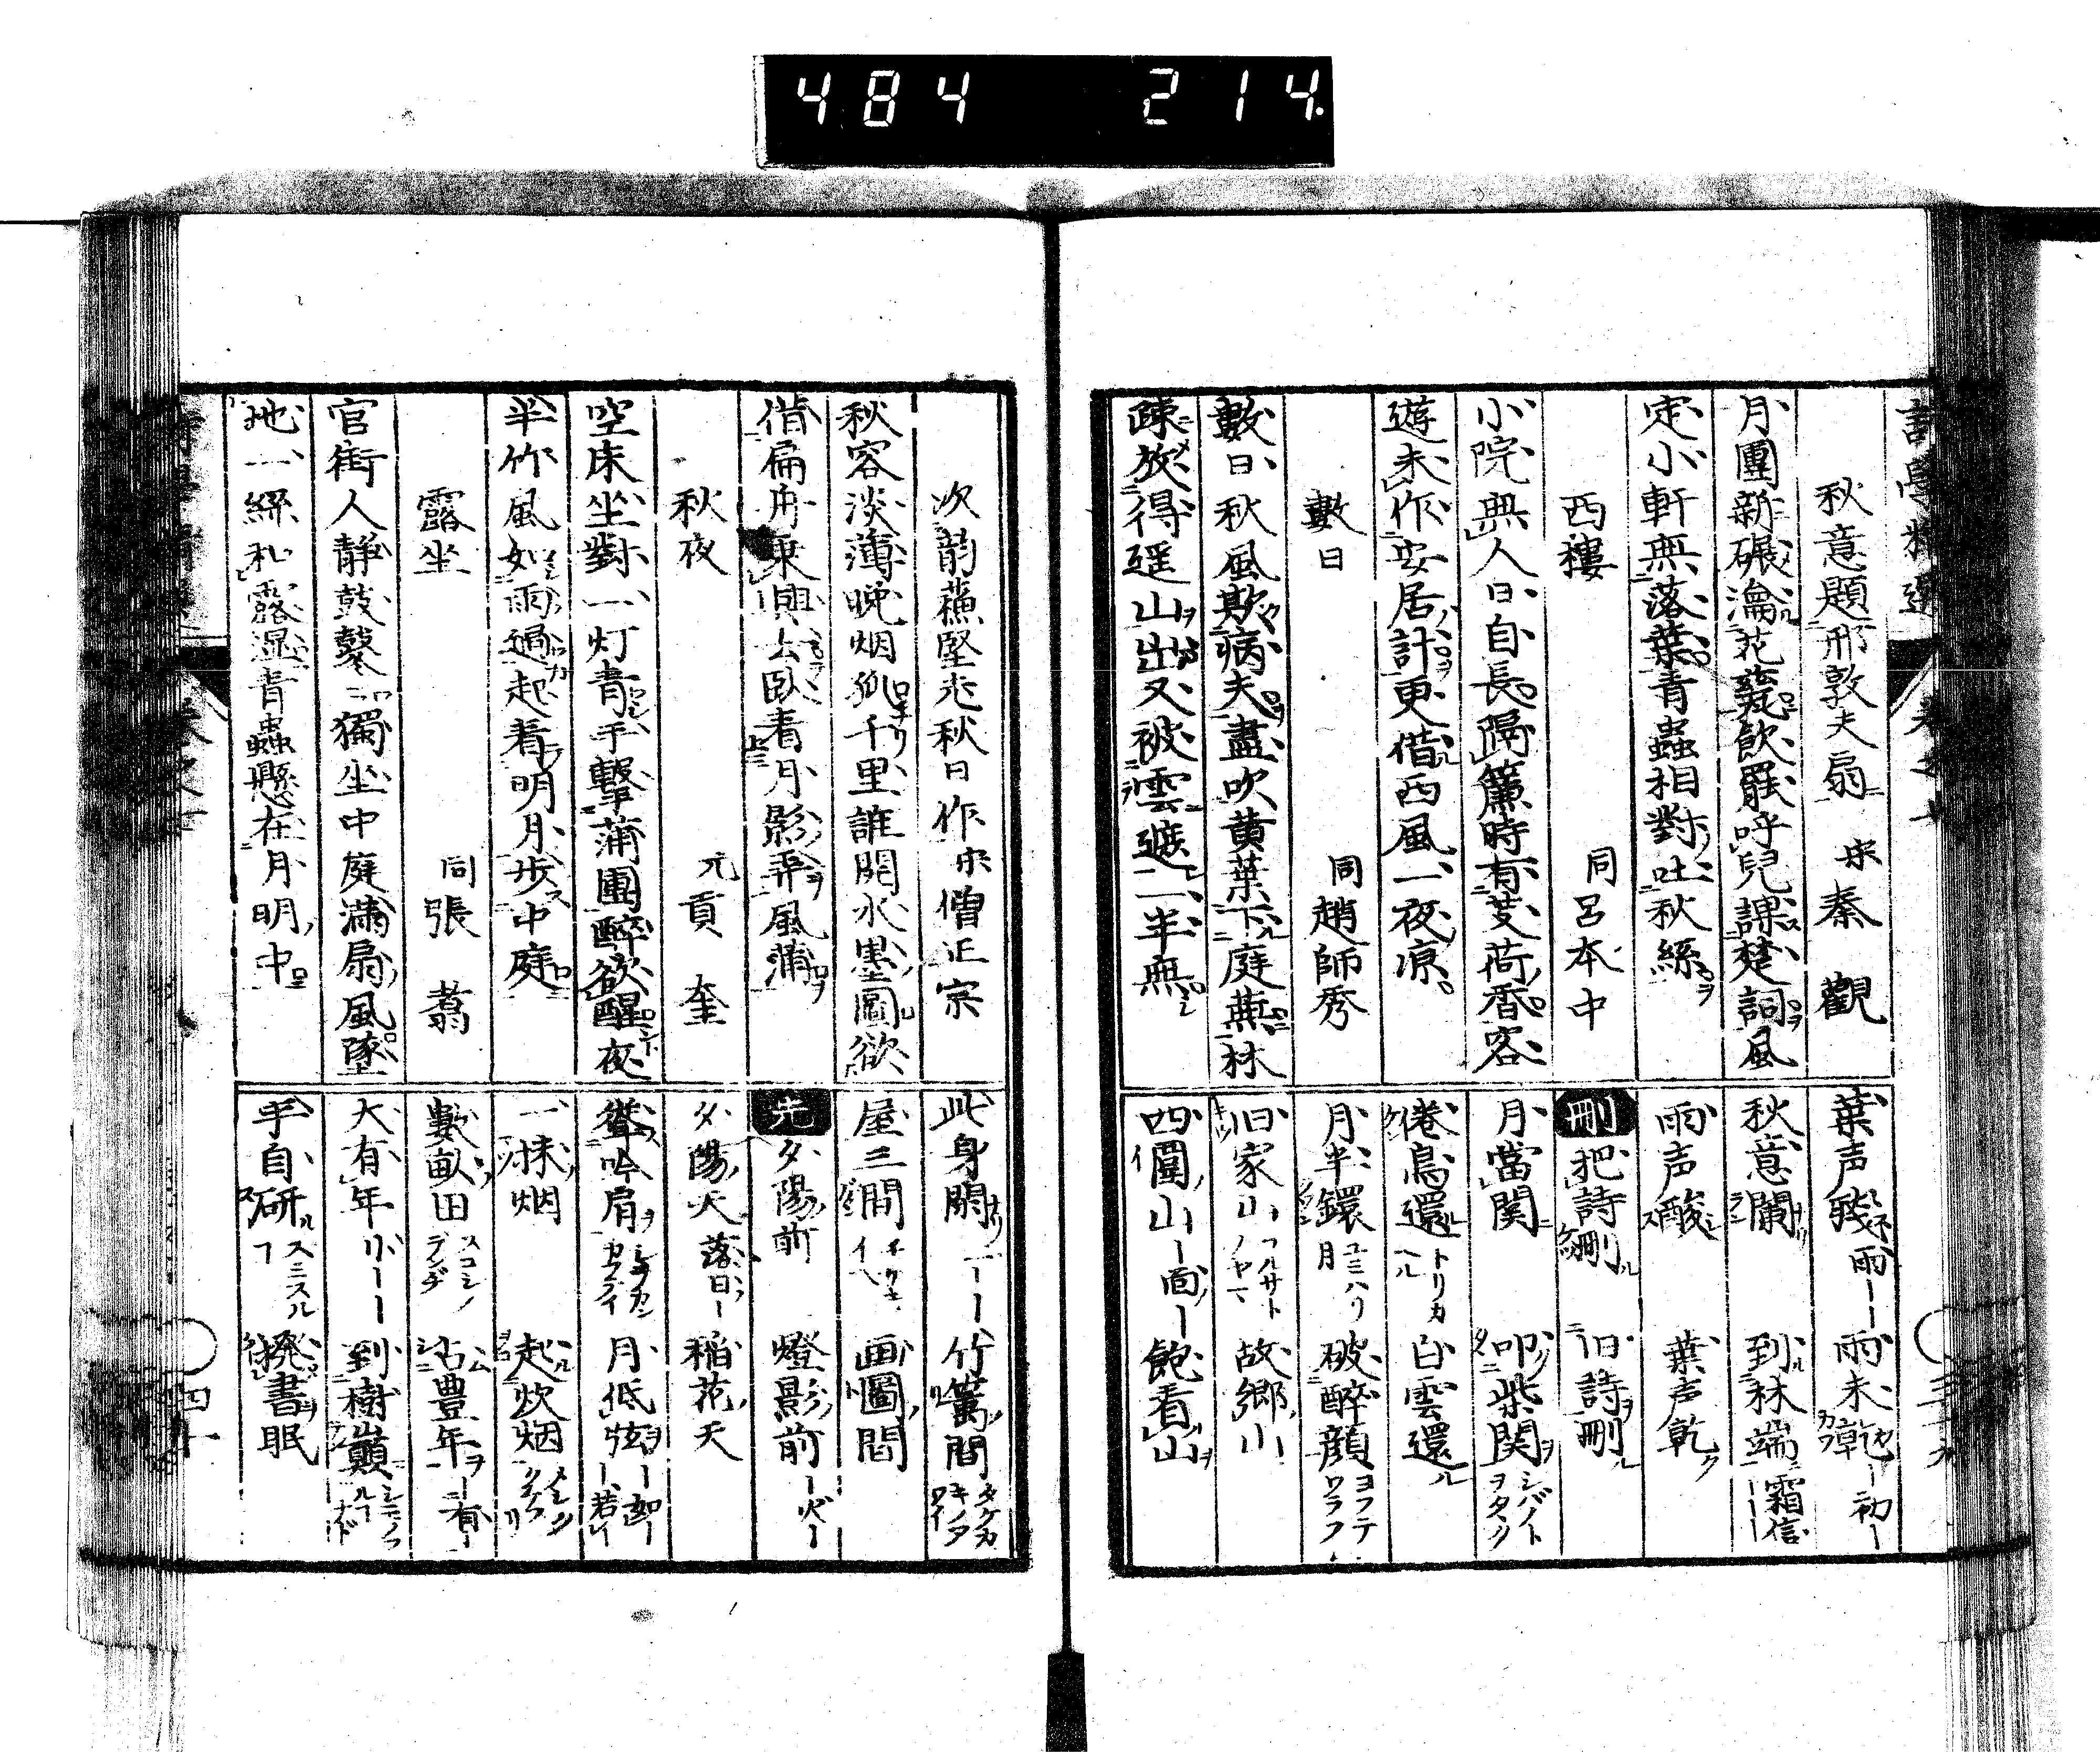 484 214.
秋意題邢敦夫扇 宋秦觀
月團新碾瀹花甆飲罷呼兒課楚詞風
定小軒無落葉青蟲相對吐秋絲
西樓 同呂本中
小院無人日自長隔簾時有芰荷香客
遊未作安居計更借西風一夜凉
數日 同趙師秀
數日秋風欺病夫盡吹黄葉下庭蕪林
疎放得遥山出又被雲遮一半無
葉声残 雨ーー 雨未乾 ー初ー
秋意闌 到林端 霜信ーー
雨声酸 葉声乾
刪 把詩刪 旧詩刪
月當関 叩柴関
倦鳥還 トリカヘル 白雲還
月半鐶 ユミハリ月 破醉顔
旧家山 フルサトノヤマ 故郷山
四圍山 ー面ー 飽看山
次韵蘓堅秋日作 宋僧正宗
秋容淡薄晩烟孤千里誰開水墨圖欲
借扁舟乗興去臥看月影弄風蒲
秋夜 元貢奎
空床坐對一灯青手擊蒲團醉欲醒夜
半竹風如雨過起看明月歩中庭
露坐 同張翥
官街人静鼓鼕鼕獨坐中庭滿扇風墜
地一絲和露湿青蟲懸在月明中
此身閒 竹籬間
屋三間 画圖間
先 夕陽前 燈影前 ー火ー
夕陽天 落日ー 稲花天
聳吟肩 月低弦 ー如ー ー若ー
一抹烟 起炊烟
數畝田 占豊年 ー有ー
大有年 到樹巓
手自研 撥書眠
四十